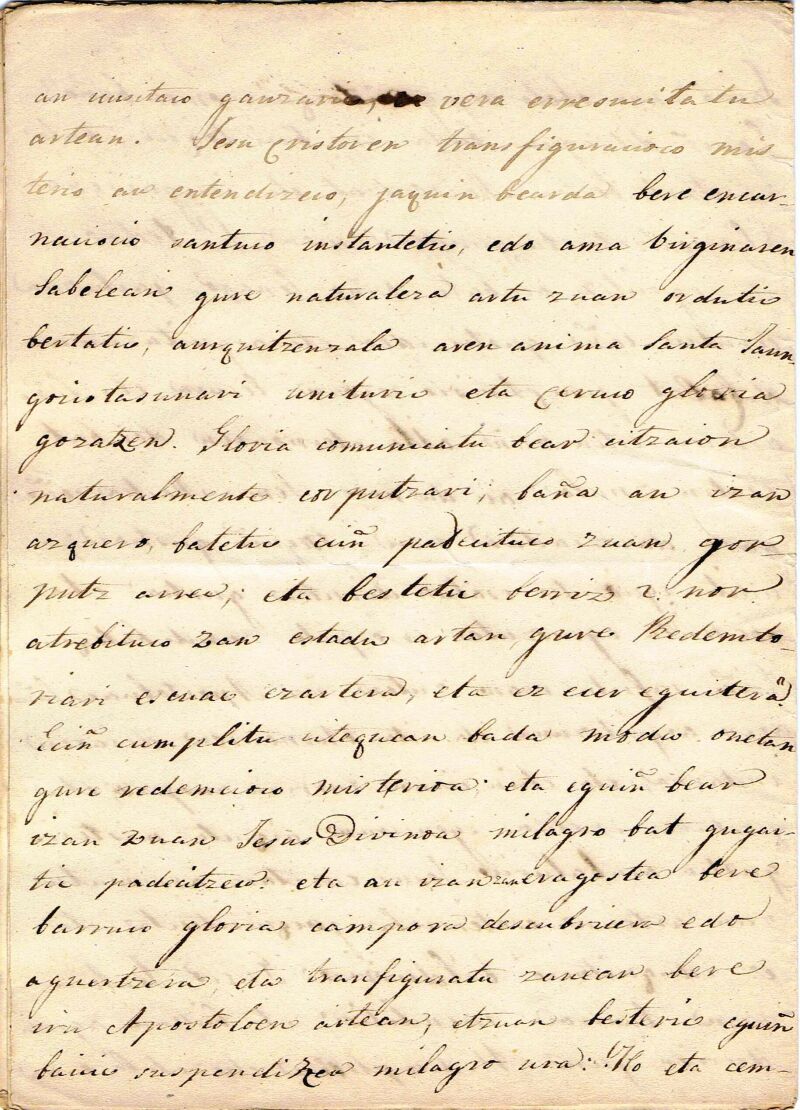 an icusitaco gauzaric, vera erresucitatu
artean. Jesu Cristoren transfiguracioco mis
terio au entendizeco, jaquin bearda bere encar-
nacioco santuco instantetic, edo ama Virginaren
Sabelean gure naturaleza artu zuan ordutic
bertatic, aurquitzenzala aren anima Santa Jaun-
goicotasunari unituric eta ceruco gloria
gozatzen. Gloria comunicatu bear citzaion
naturalmente corputzari; baña au izan
azquero, batetic eciñ padecituco zuan gor-
putz arrec; eta bestetic berriz ¿ nor
atrebituco zan estadu artan gure Redemto-
riari escuac ezartera, eta ez cer eguitera?
Eciñ cumplitu citequean bada modu onetan
gure redemcioco misterioa: eta eguiñ bear
izan zuan Jesus Divinoa milagro bat gugai-
tic padecitzeco: eta au izan zan eragostea bere
barruco gloria campora descubricera edo
aguertzera, eta tranfiguratu zanean bere
iru Apostoloen artean, etzuan besteric eguiñ
baicic suspendizea milagro ura: ¡Ho eta cem-